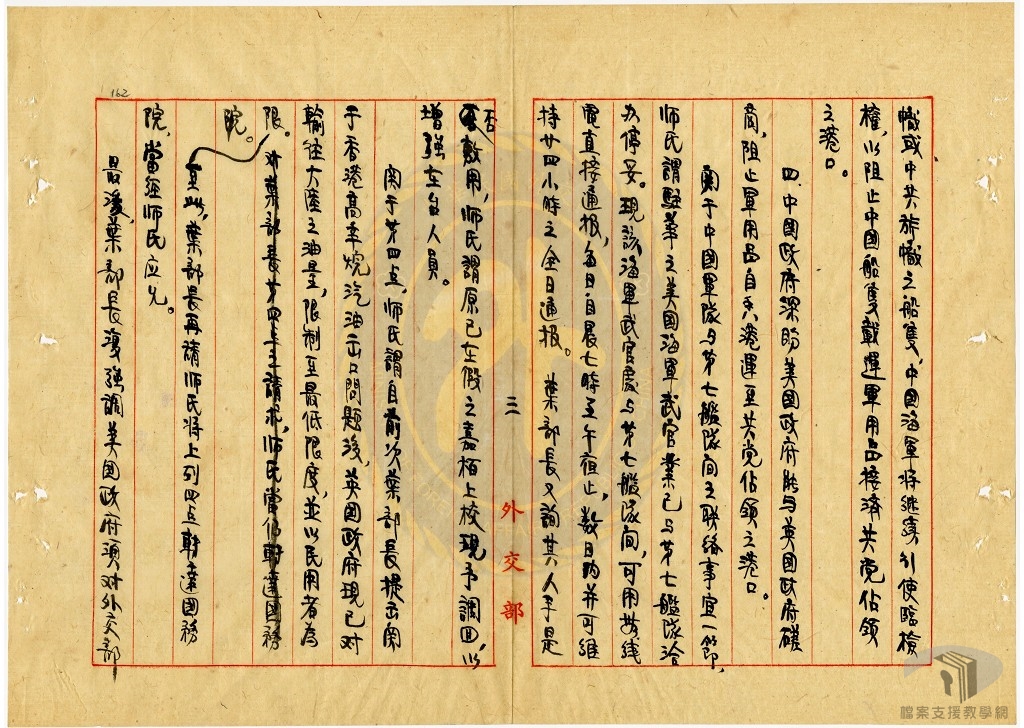 幟或中共旅幟之船隻，中國海軍将继续引使臨檢
權，以阻止中國船隻載運軍用品接済共党佔領
之港口。
四、中國政府深盼美國政府能与英國政府磋
商，阻止軍用品自香港運至共党佔領之港口。
関于中國軍隊与第七艦隊间之联络事宜一節，
师氏謂駐華之美國海軍武官業已与第七艦隊洽
办停妥。現該海軍武官處与第七艦隊间，可用無线
電直接通报，每日自晨七時至午夜止，数日内并可維
持廿四小時之全日通报。葉部长又詢其人手是
否敷用，师氏謂原已在假之嘉栢上校現予調回，以
增強在台人員。
関于第四点，师氏謂自前次葉部長提出関
于香港高辛烷汽油出口問題後，英國政府現已对
輸往大陸之油量，限制至最低限度，並以民用者為
限。对葉部長第四点之請求，师氏當允轉達國務
院。
至此，葉部長再請师氏将上列四点轉達國務
院，當經师氏应允。
最後，葉部長復強調美國政府須对外交部
三
外交部
162
檔案支援教學網